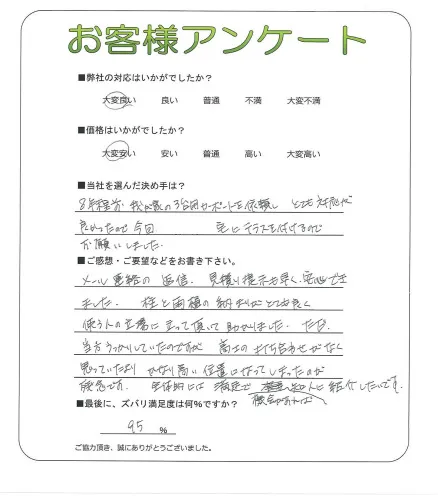 お客様アンケート
■弊社の対応はいかがでしたか？
大変良い 良い 普通 不満 大変不満
■価格はいかがでしたか？
大変安い 安い 普通 高い 大変高い
■当社を選んだ決め手は？
8年程前 我が家の3台用カーポートを依頼し とても対応が
良かったので今回 宅にテラスを付けるので
お願いしました.
■ご感想・ご要望などをお書き下さい。
メール連絡の返信. 見積り提示も早く.安心でき
ました. 柱と雨樋の納まりがとても良く
使う人の立場に立って頂いて助かりました. ただ.
当方うっかりしていたのですが 高さの打ち合わせがなく
思っていたより かなり高い位置になってしまったのが
残念です. 全体的には 満足で 人に紹介したいです.
機会があれば
■最後に、ズバリ満足度は何％ですか？
95 %
ご協力頂き、誠にありがとうございました。